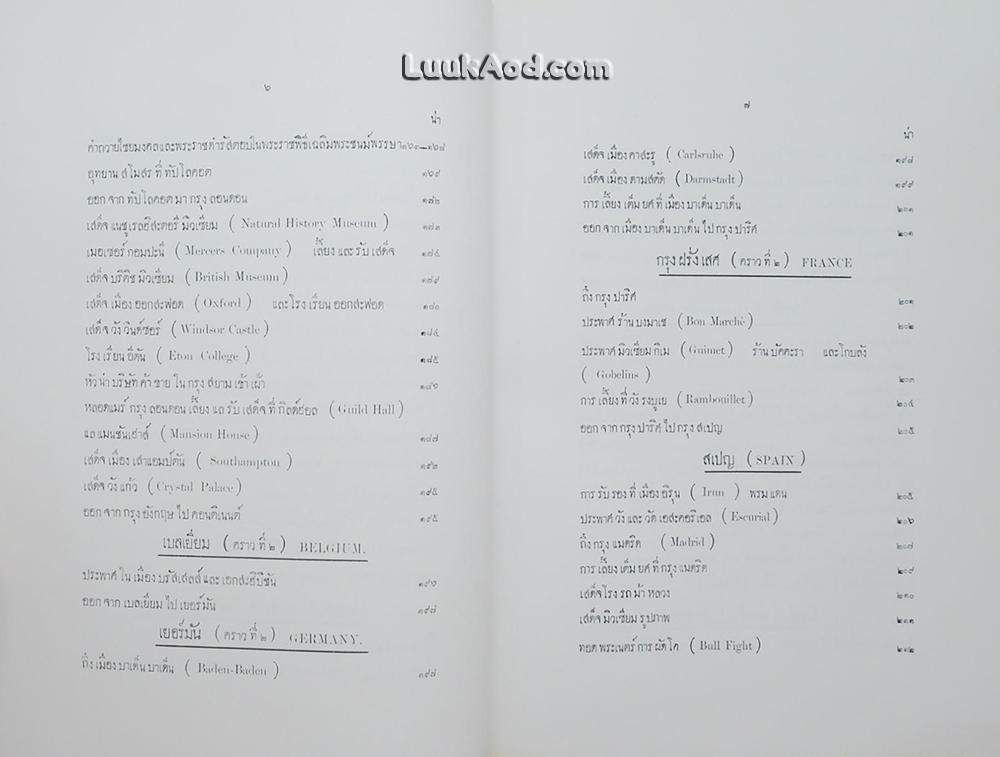 LuukAod.com
๖
น่า
คำถวายไชยมงคลและพระราชดำรัสตอบในพระราชพิธีเฉลิมพระชนม์พรรษา ๑๖๓—๑๖๘
อุทยาน สโมสร ที่ ทัปโลคอต ๑๖๙
ออก จาก ทัปโลคอต มา กรุง ลอนดอน ๑๗๒
เสด็จ แนชุเรลฮิสะตอรี มิวเซียม ( Natural History Museum ) ๑๗๓
เมอเซอร์ กอมปะนี ( Mercers Company ) เลี้ยง และ รับ เสด็จ
เสด็จ บริติช มิวเซียม ( British Museum ) ๑๗๙
เสด็จ เมือง ออกสะฟอด ( Oxford ) และ โรง เรียน ออกสะฟอด ๑๘๐
เสด็จ วัง วินด์ซอร์ ( Windsor Castle )
โรง เรียน อีตัน ( Eton College ) ๑๘๕
หัว น่า บริษัท ค้า ขาย ใน กรุง สยาม เข้า เฝ้า ๑๘๖
หลอดแมร์ กรุง ลอนดอน เลี้ยง แล รับ เสด็จ ที่ กิลด์ฮอล ( Guild Hall )
แล แมนชันเฮ่าส์ ( Mansion House ) ๑๘๗
เสด็จ เมือง เสาแอมป์ตัน ( Southampton ) ๑๙๓
เสด็จ วัง แก้ว ( Crystal Palace ) ๑๙๕
ออก จาก กรุง อังกฤษ ไป คอนติเนนต์ ๑๙๕
เบลเยี่ยม ( คราว ที่ ๒ ) BELGIUM.
ประพาศ ใน เมือง บรัสเสลล์ และ เอกสะฮิบิชัน ๑๙๖
ออก จาก เบลเยี่ยม ไป เยอร์มัน ๑๙๗
เยอร์มัน ( คราว ที่ ๒ ) GERMANY.
ถึง เมือง บาเด็น บาเด็น ( Baden-Baden ) ๑๙๗
๗
น่า
เสด็จ เมือง คาสะรู ( Carlsruhe ) ๑๙๘
เสด็จ เมือง ดามสตัด ( Darmstadt ) ๑๙๙
การ เลี้ยง เต็ม ยศ ที่ เมือง บาเด็น บาเด็น ๒๐๑
ออก จาก เมือง บาเด็น บาเด็น ไป กรุง ปาริศ ๒๐๑
กรุง ฝรั่ง เศศ ( คราว ที่ ๒ ) FRANCE
ถึง กรุง ปาริศ ๒๐๑
ประพาศ ร้าน บงมาเช ( Bon Marchè ) ๒๐๒
ประพาศ มิวเซียม กิเม ( Guimet ) ร้าน บัคคะรา และ โกบลัง
( Gobelins ) ๒๐๓
การ เลี้ยง ที่ วัง รงบูเย ( Rambouillet ) ๒๐๔
ออก จาก กรุง ปาริศ ไป กรุง สเปญ ๒๐๕
สเปญ ( SPAIN )
การ รับ รอง ที่ เมือง อิรุน ( Irun ) พรม แดน ๒๐๕
ประพาศ วัง และ วัด เอสะคอริเอล ( Escurial ) ๒๐๖
ถึง กรุง แมดริด ( Madrid ) ๒๐๗
การ เลี้ยง เต็ม ยศ ที่ กรุง แมดริด ๒๐๙
เสด็จ โรง รถ ม้า หลวง ๒๑๐
เสด็จ มิวเซียม รูปภาพ ๒๑๑
ทอด พระเนตร์ การ ผัด โค ( Bull Fight ) ๒๑๒